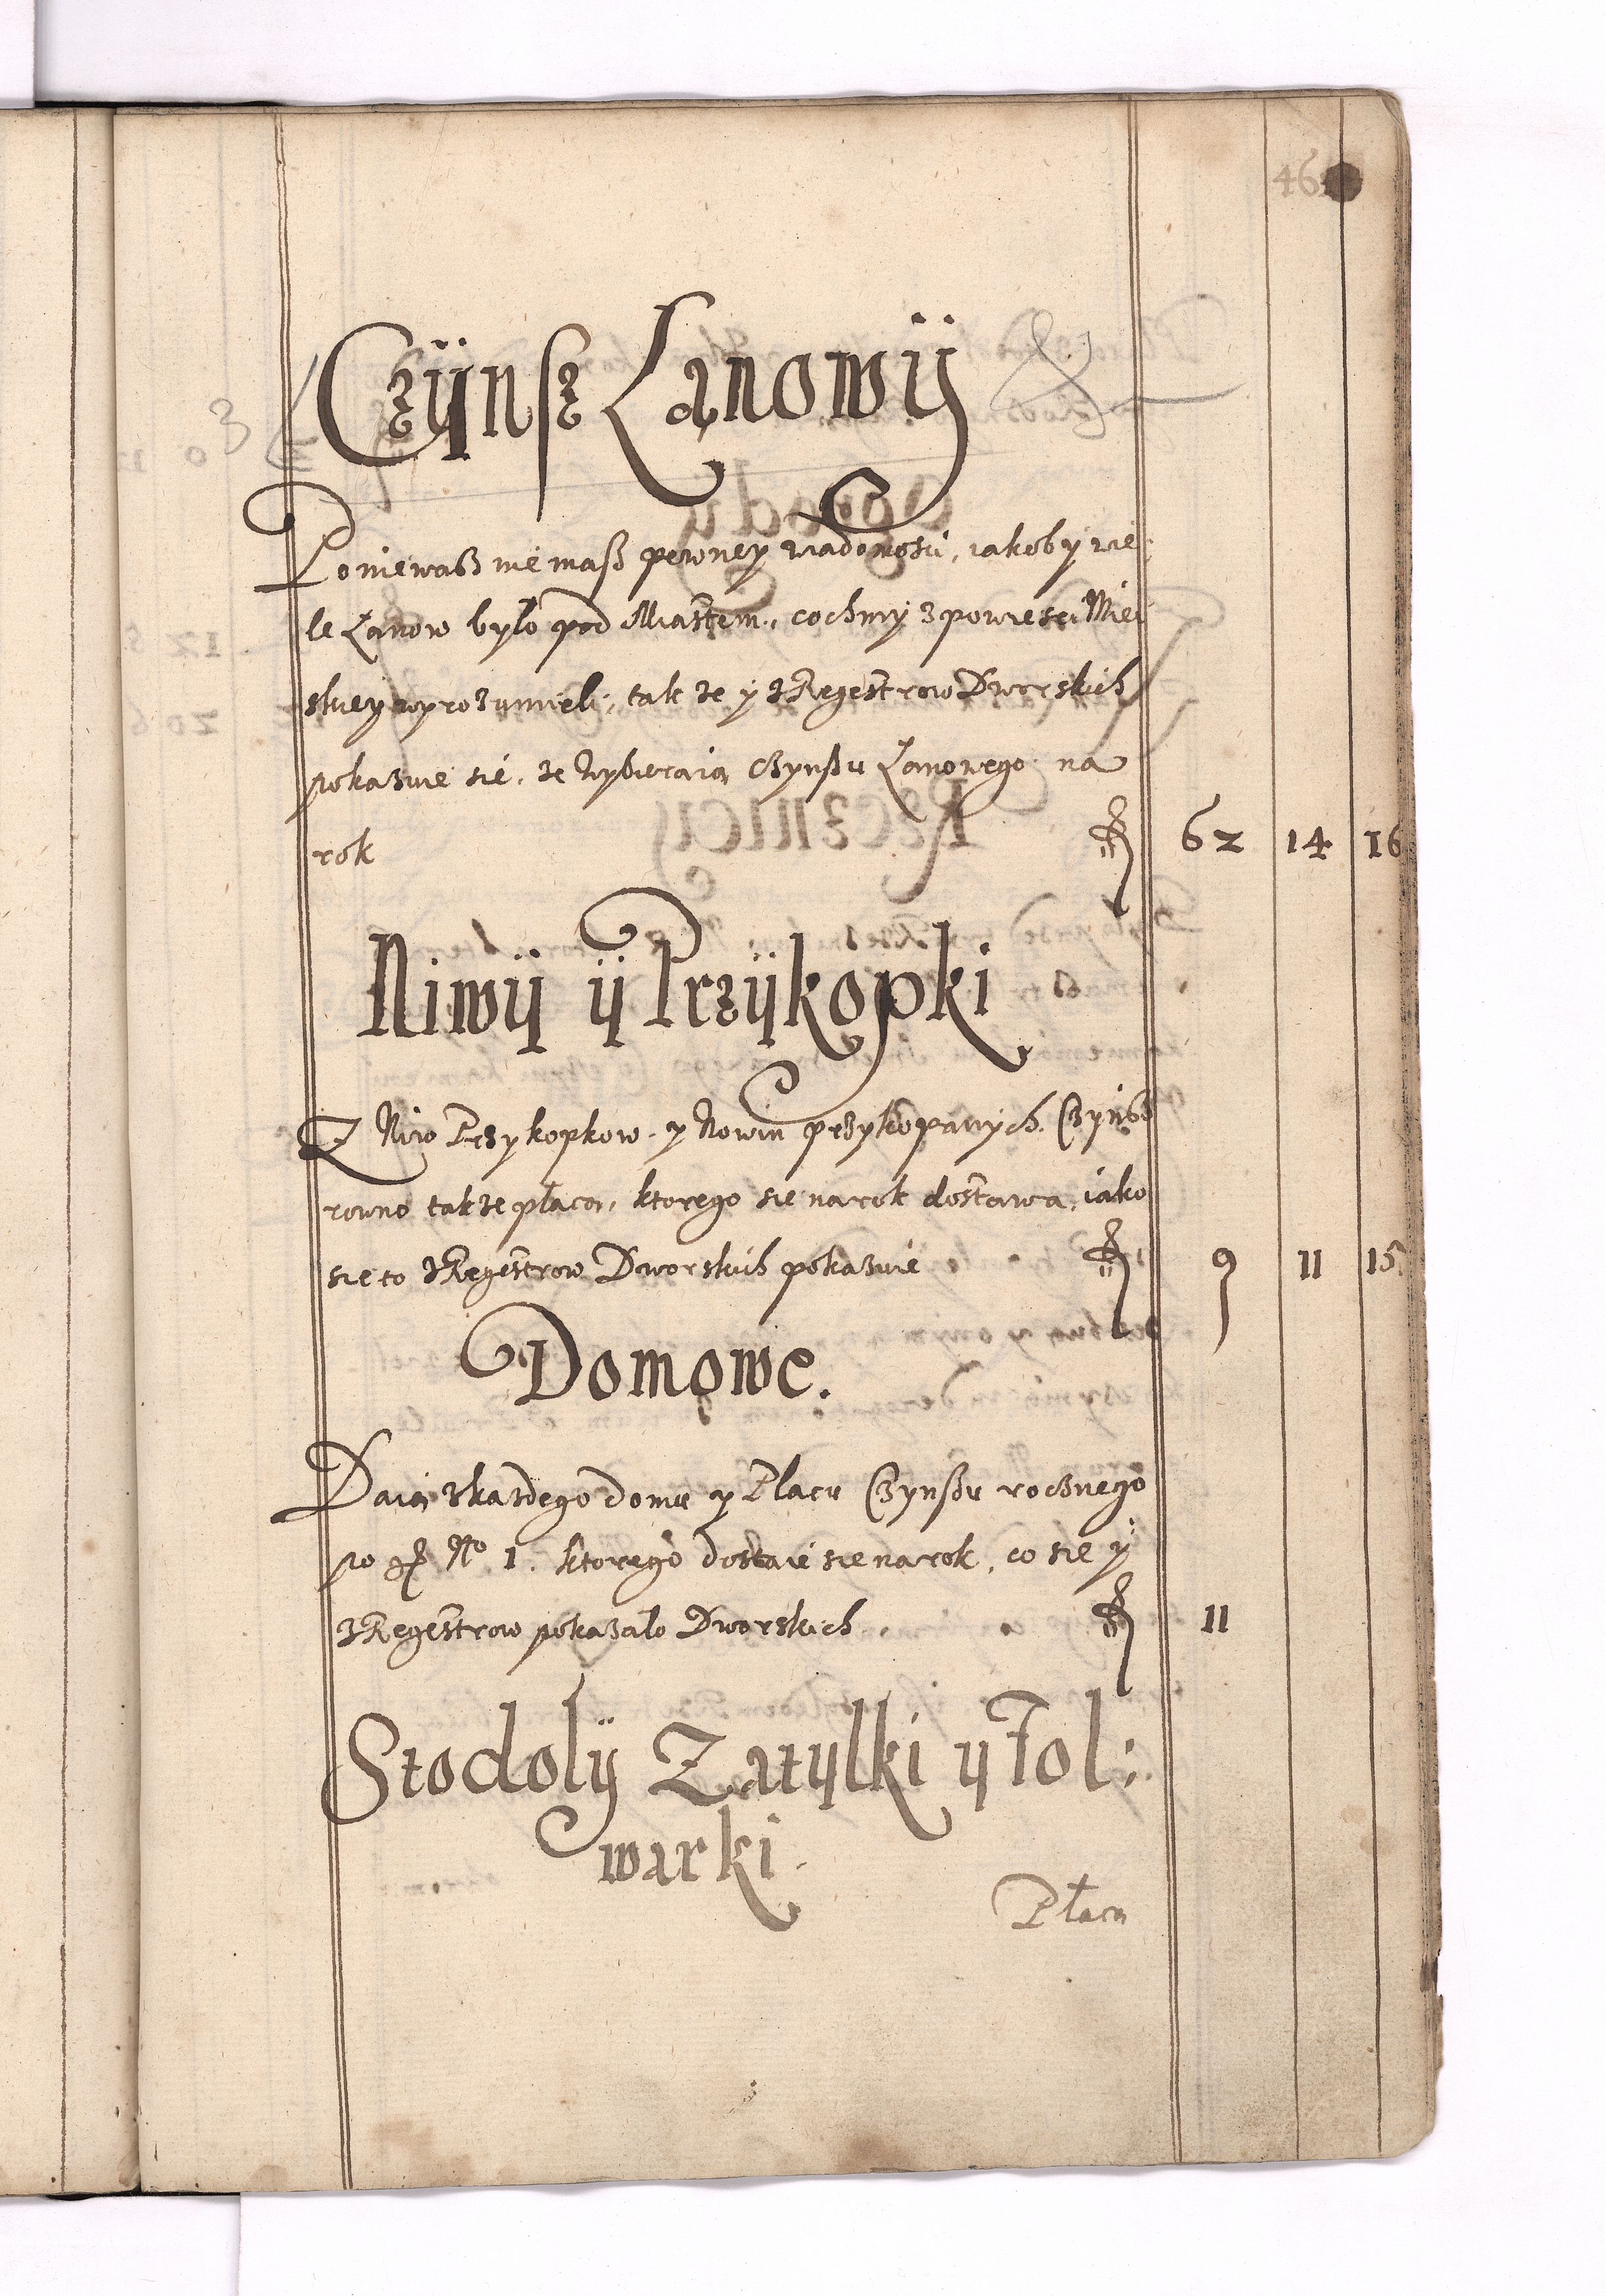 46
Czÿnsz Łanowÿ
Poniewasz nie masz pewney wiadomosci, iakoby wie:
le Łanow było pod Miastem, cochmy z powiesci Miei
skiey wyrozumieli, tak ze y z Regestrow Dworskich
pokazuie sie, ze wybieraią Czynszu Łanowego na
rok 62 14 16
Niwÿ ÿ Przÿkopki
Z Niw Przykopkow y Nowin przykopanych Czynsz
rowno takze płacą, ktorego sie na rok dostawa, iako
sie to z Regestrow Dworskich pokazuie 9 11 15
Domowe.
Daią z kazdego domu y Placu Czynszu rocznego
po gr No 1. ktorego dostaie sie na rok, co sie y
z Regestrow pokazało Dworskich 11
Stodolÿ Zatylki ÿ Fol:
warki.
Płacą